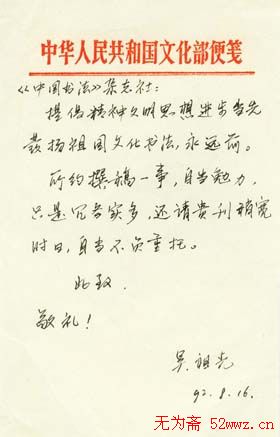 中华人民共和国文化部便笺
《中国书法》杂志社：
提倡精神文明思想进步当先
发扬祖国文化书法，永远前。
所约撰稿一事，自当勉力，
只是冗务实多，还请贵刊稍宽
时日，自当不负重托。
此致
敬礼！
吴祖光
92.8.16.
无为斋 52wwz.cn